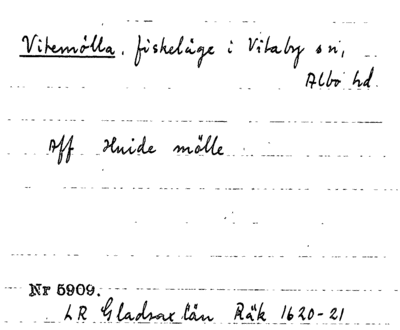 Vitemölla. fiskeläge i Vitaby sn,
Albo hd.
Aff Huide mölle
Nr 5909.
LR Gladsax län Räk 1620-21